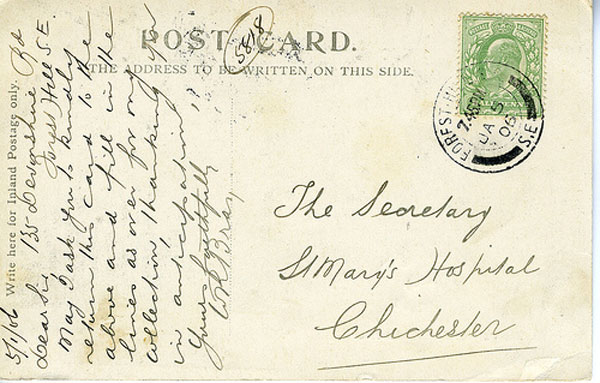 POST CARD.
5818
THE ADDRESS TO BE WRITTEN ON THIS SIDE.
Write here for Inland Postage only.
135 Devonshire Rd
Forest Hill S.E.
5/1/06
Dear Sir
May I ask you to kindly
return this card to the
above and fill in the
lines as over for my
collection, thanking you
in anticipation
Yours faithfully
Bray
POSTAGE & REVENUE
HALFPENNY
FOREST HILL
7.45PM
JA 5
06
S.E.
The Secretary
St Mary's Hospital
Chichester